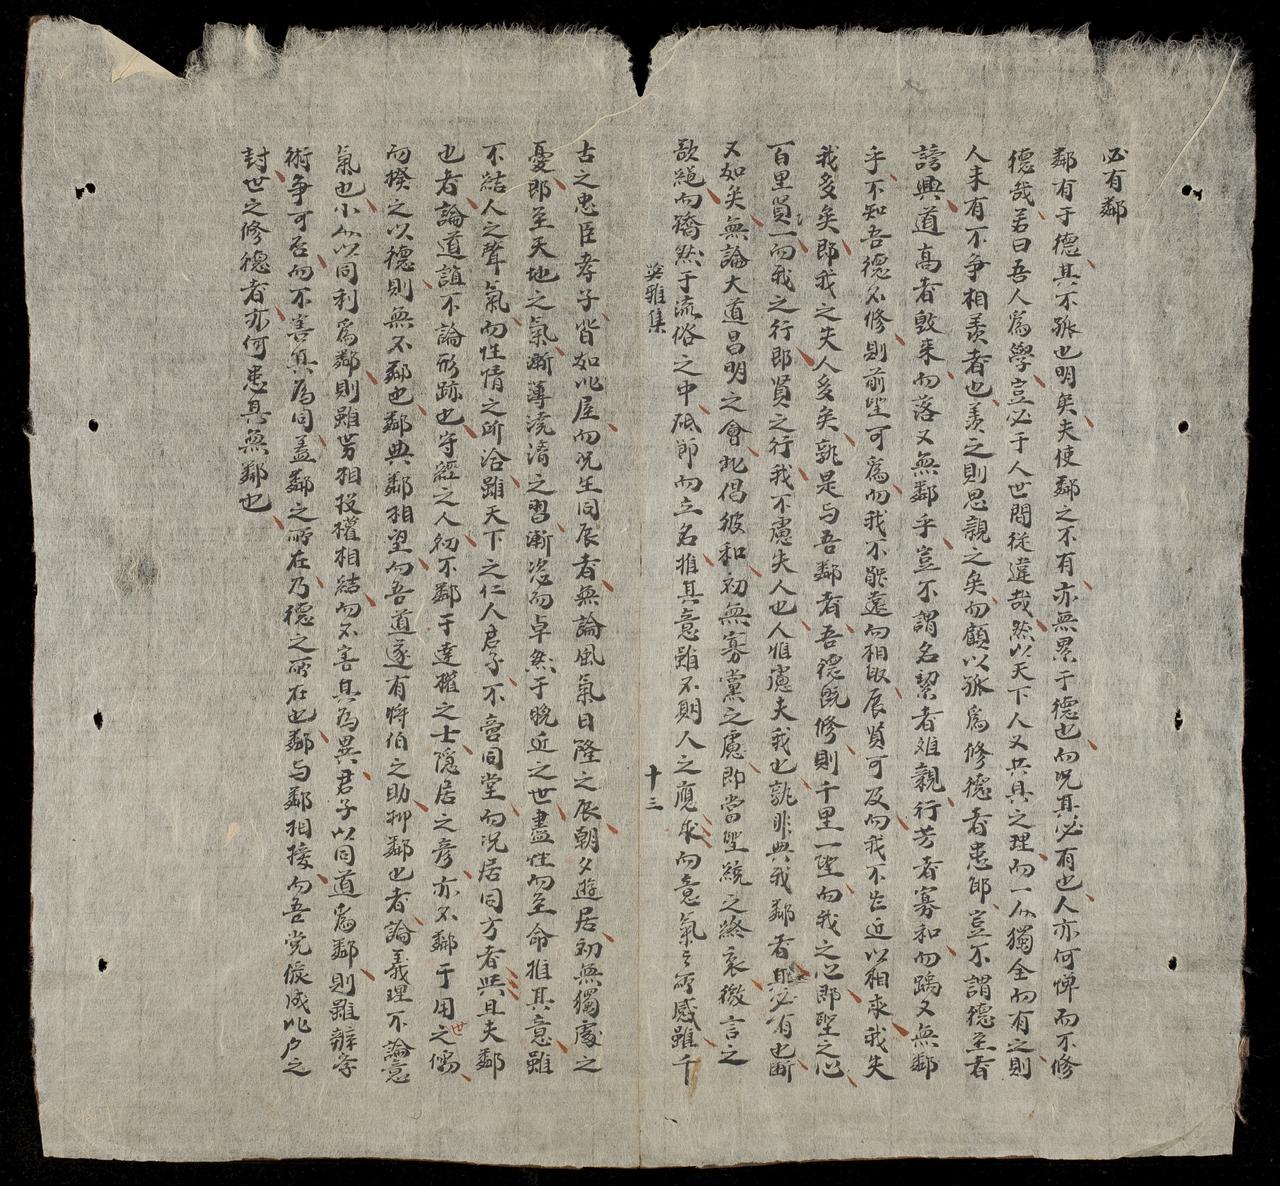 必有鄰
鄰有于德其不孤也明矣夫使鄰之不有亦無累于德也而况其必有也人亦何憚而不修
德哉若曰吾人為學豈必于人世問從違哉然以天下人又共具之理而一人獨全而有之則
人未有不爭相羨者也羨之則思親之矣而顧以孤為修德者患耶豈不謂德至者
謗興道高者毀来而落又無鄰乎豈不謂名潔者难親行芳者寡和而踽又無鄰
乎不知吾德不修則前聖可為而我不能遠而相取辰賢可及而我不必近以相求我失
我多矣即我之失人多矣孰是与吾鄰者吾德既修則千里一聖而我之心即聖之心
百里賢一而我之行即賢之行我不慮失人也人惟慮失我也孰非與我鄰者其必有也断
又如矣無論大道昌明之會此倡彼和初無寡黨之慮即當聖統之終衰微言之
歇絕而矯然于流俗之中砥節而立名推其意雖不期人之應求而意氣之所感雖千
奕雅集
十三
古之忠臣孝子皆如比屋而况生同辰者無論風氣日隆之辰朝夕遊居初無獨處之
憂即至天地之氣漸薄澆漓之習漸沿而卓然于晚近之世盡性而至命推其意雖
不結人之聲氣而性情之所洽雖天下之仁人君子不啻同堂而况居同方者與且夫鄰
也者論道誼不論形跡也守經之人初不鄰于達權之士隱居之彥亦不鄰于用世之儒
而揆之以德則無不鄰也鄰與鄰相望而吾道遂有將伯之助抑鄰也者論義理不論意
氣也小人以同利為鄰則雖勢相投權相結而不害其為異君子以同道為鄰則雖辯学
術爭可否而不害其為同盖鄰之所在乃德之所在也鄰与鄰相接而吾党儼成此户之
封世之修德者亦何患其無鄰也